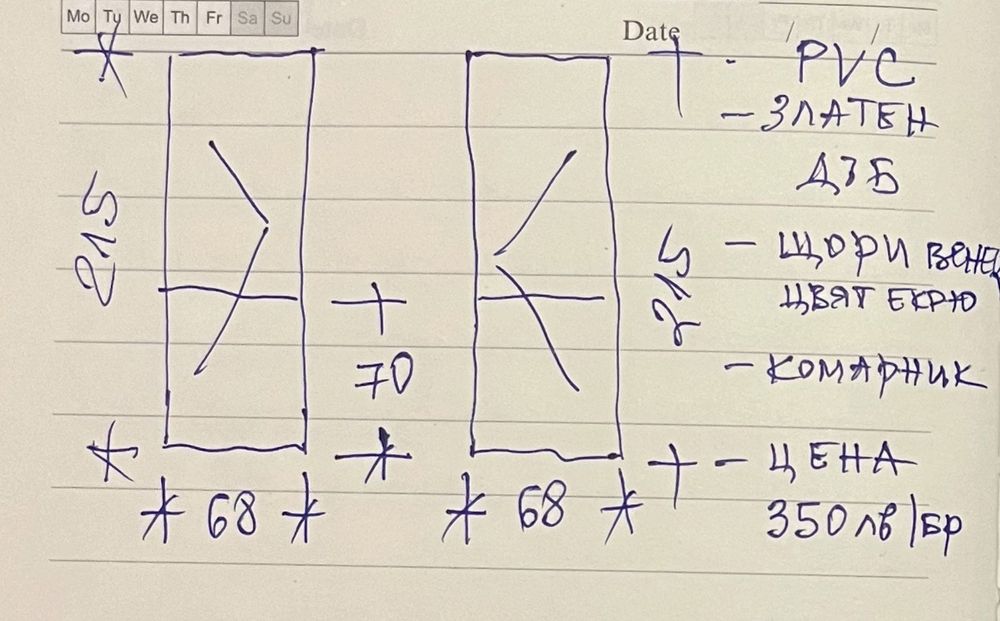 Mo Tu We Th Fr Sa Su
Date / /
- PVC
- ЗЛАТЕН
ДЪБ
215
215
- ЩОРИ ВЕНЕЦ
ЦВЯТ ЕКРЮ
70
- КОМАРНИК
- ЦЕНА
68
68
350лв/бр